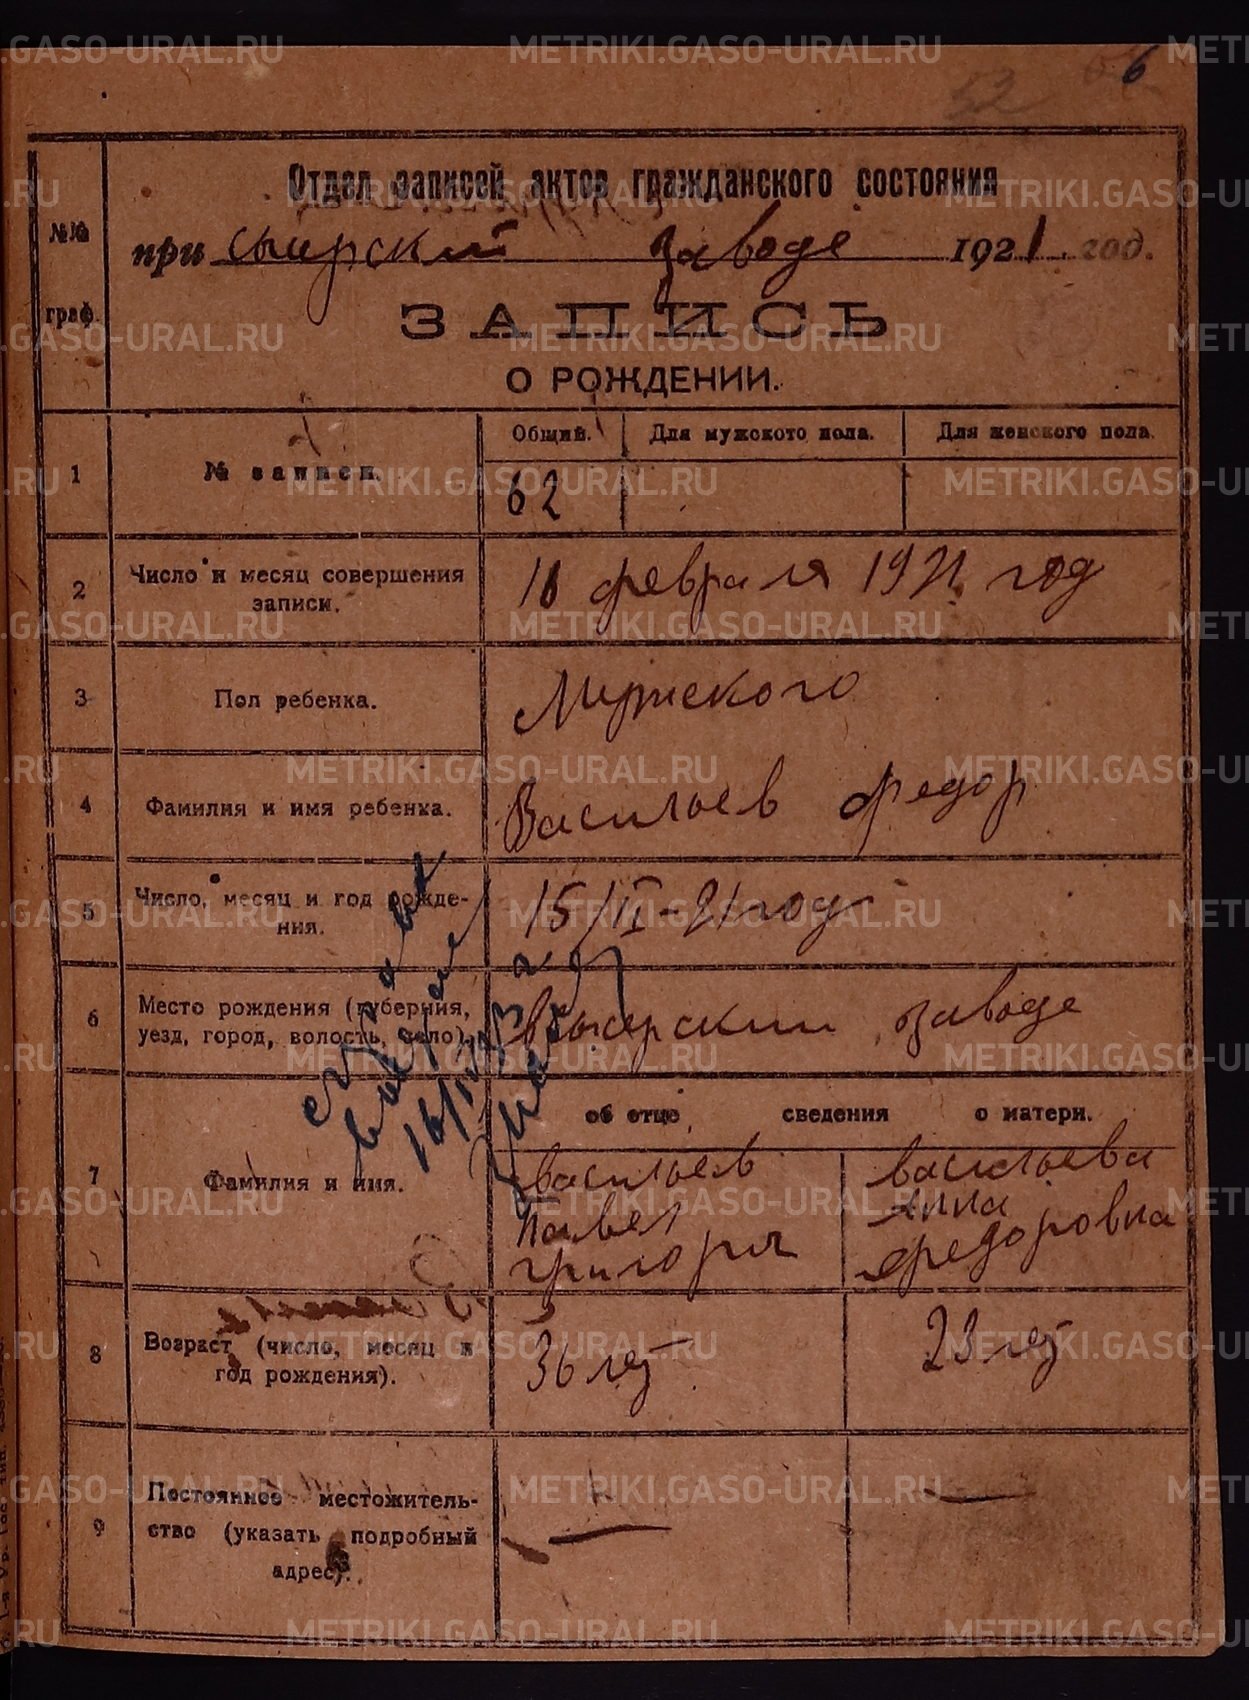 52 6
Отдел записей актов гражданского состояния
№№
при сысерский заводе 1921 год.
граф.
ЗАПИСЬ
О РОЖДЕНИИ.
Общий. Для мужского пола. Для женского пола.
1 № записи.
62
2 Число и месяц совершения
записи.
февраля 1921 год
3 Пол ребенка. Мужского
4 Фамилия и имя ребенка. Васильев Федор
5 Число, месяц и год рожде-
ния.
15/II-21 год
6 Место рождения (губерния,
уезд, город, волость, село).
в сысерский заводе
об отце сведения о матери.
7 Фамилия и имя.
Васильев
Павел
Григорьи
Васильева
Анна
Федоровна
8 Возраст (число, месяц и
год рождения).
36 лет 23 лет
9 Постоянное местожитель-
ство (указать подробный
адрес).
METRIKI.GASO-URAL.RU